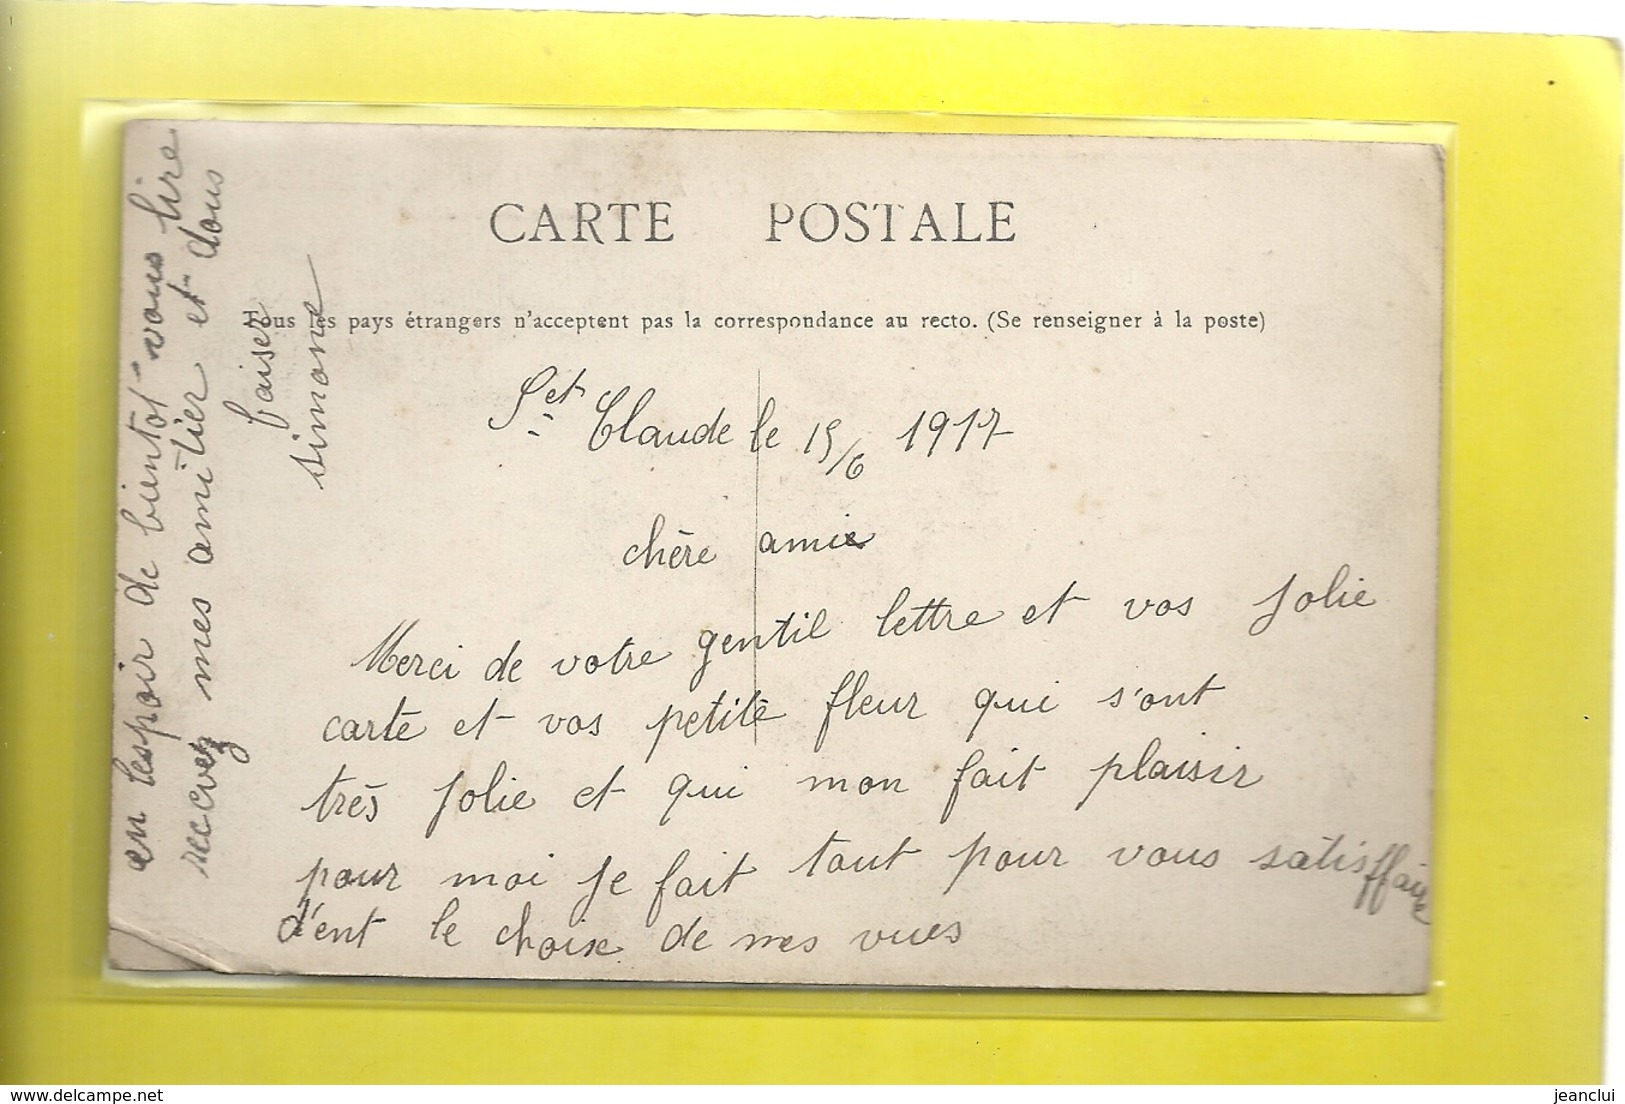 CARTE POSTALE
Tous les pays étrangers n'acceptent pas la correspondance au recto. (Se renseigner à la poste)
Set Claude le 15/6 1917
chère amie
Merci de votre gentil lettre et vos Jolie
carte et vos petite fleur qui s'ont
très Jolie et qui mon fait plaisir
pour moi Je fait tout pour vous satisffaire
d'ent le choix de mes vues
en l'espoir de bientot vous lire
recvez mes amitier et doux
baiser
simone
jeanclui